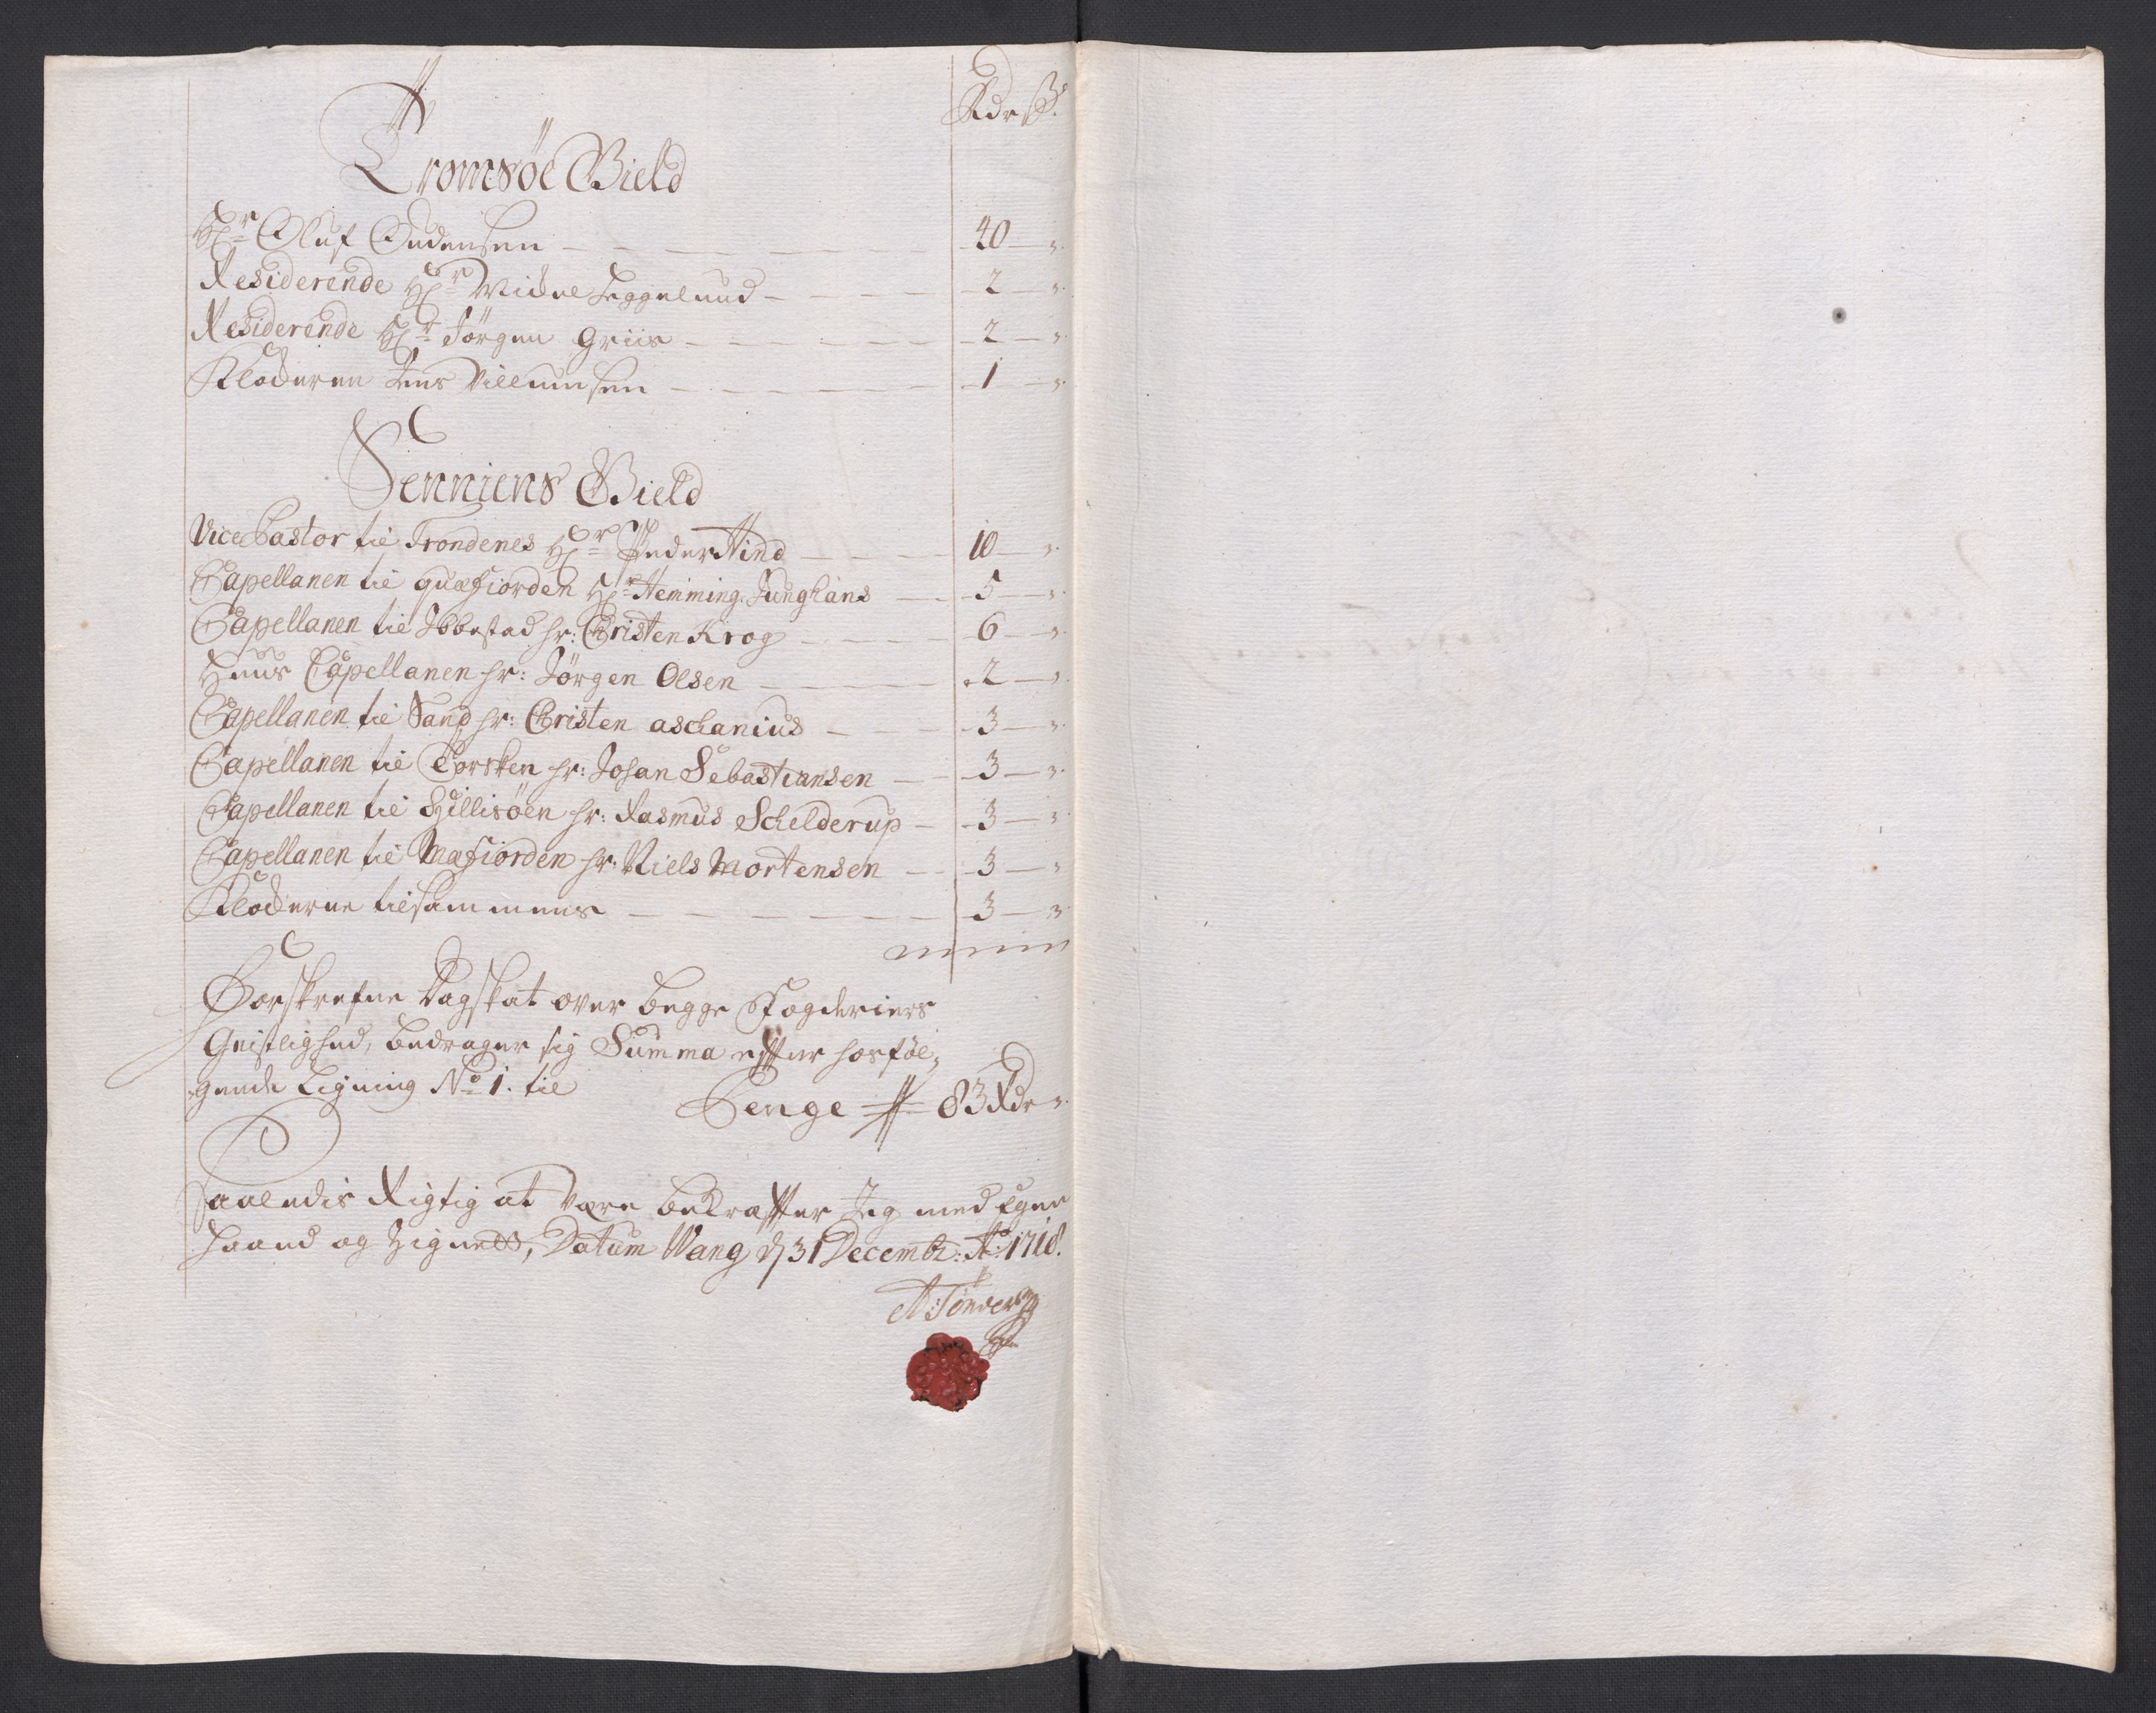 Rdr ß.
Tromsöe Gield
Hr Oluf Audensen 40
Residerende Hr Michel Heggelund 2
Residerende Hr Jörgen Griis 2
Klockeren Jens Villumsen 1
Senniens Gield
Vice Pastor til Trondenes Hr Peder Hind 10
Capellanen til quæfiorden Hr Hemming Junghans 5
Capellanen til Ibbestad hr: Christen Krog 6
Hans Capellanen hr: Jörgen Olsen 2
Capellanen til Sand hr: Christen aschanius 3
Capellanen til Torsken hr: Johan Sebastiansen 3
Capellanen til Hillisöen hr: Rasmus Schelderup 3
Capellanen til Mafiorden hr: Niels Mortensen 3
Klockerne tilsammens 3
Forskrefne Dagskat over begge Fogderiers
Geistlighed, bedrager sig Summa efter hosföl,
gende Ligning No 1. til
Penge 83 Rdr
Saaledis Rigtig at være bekræffter Jeg med Egen
Haand og Zignett, Datum Wang d 31 Decembr: Ao: 1718.
A: Tönder